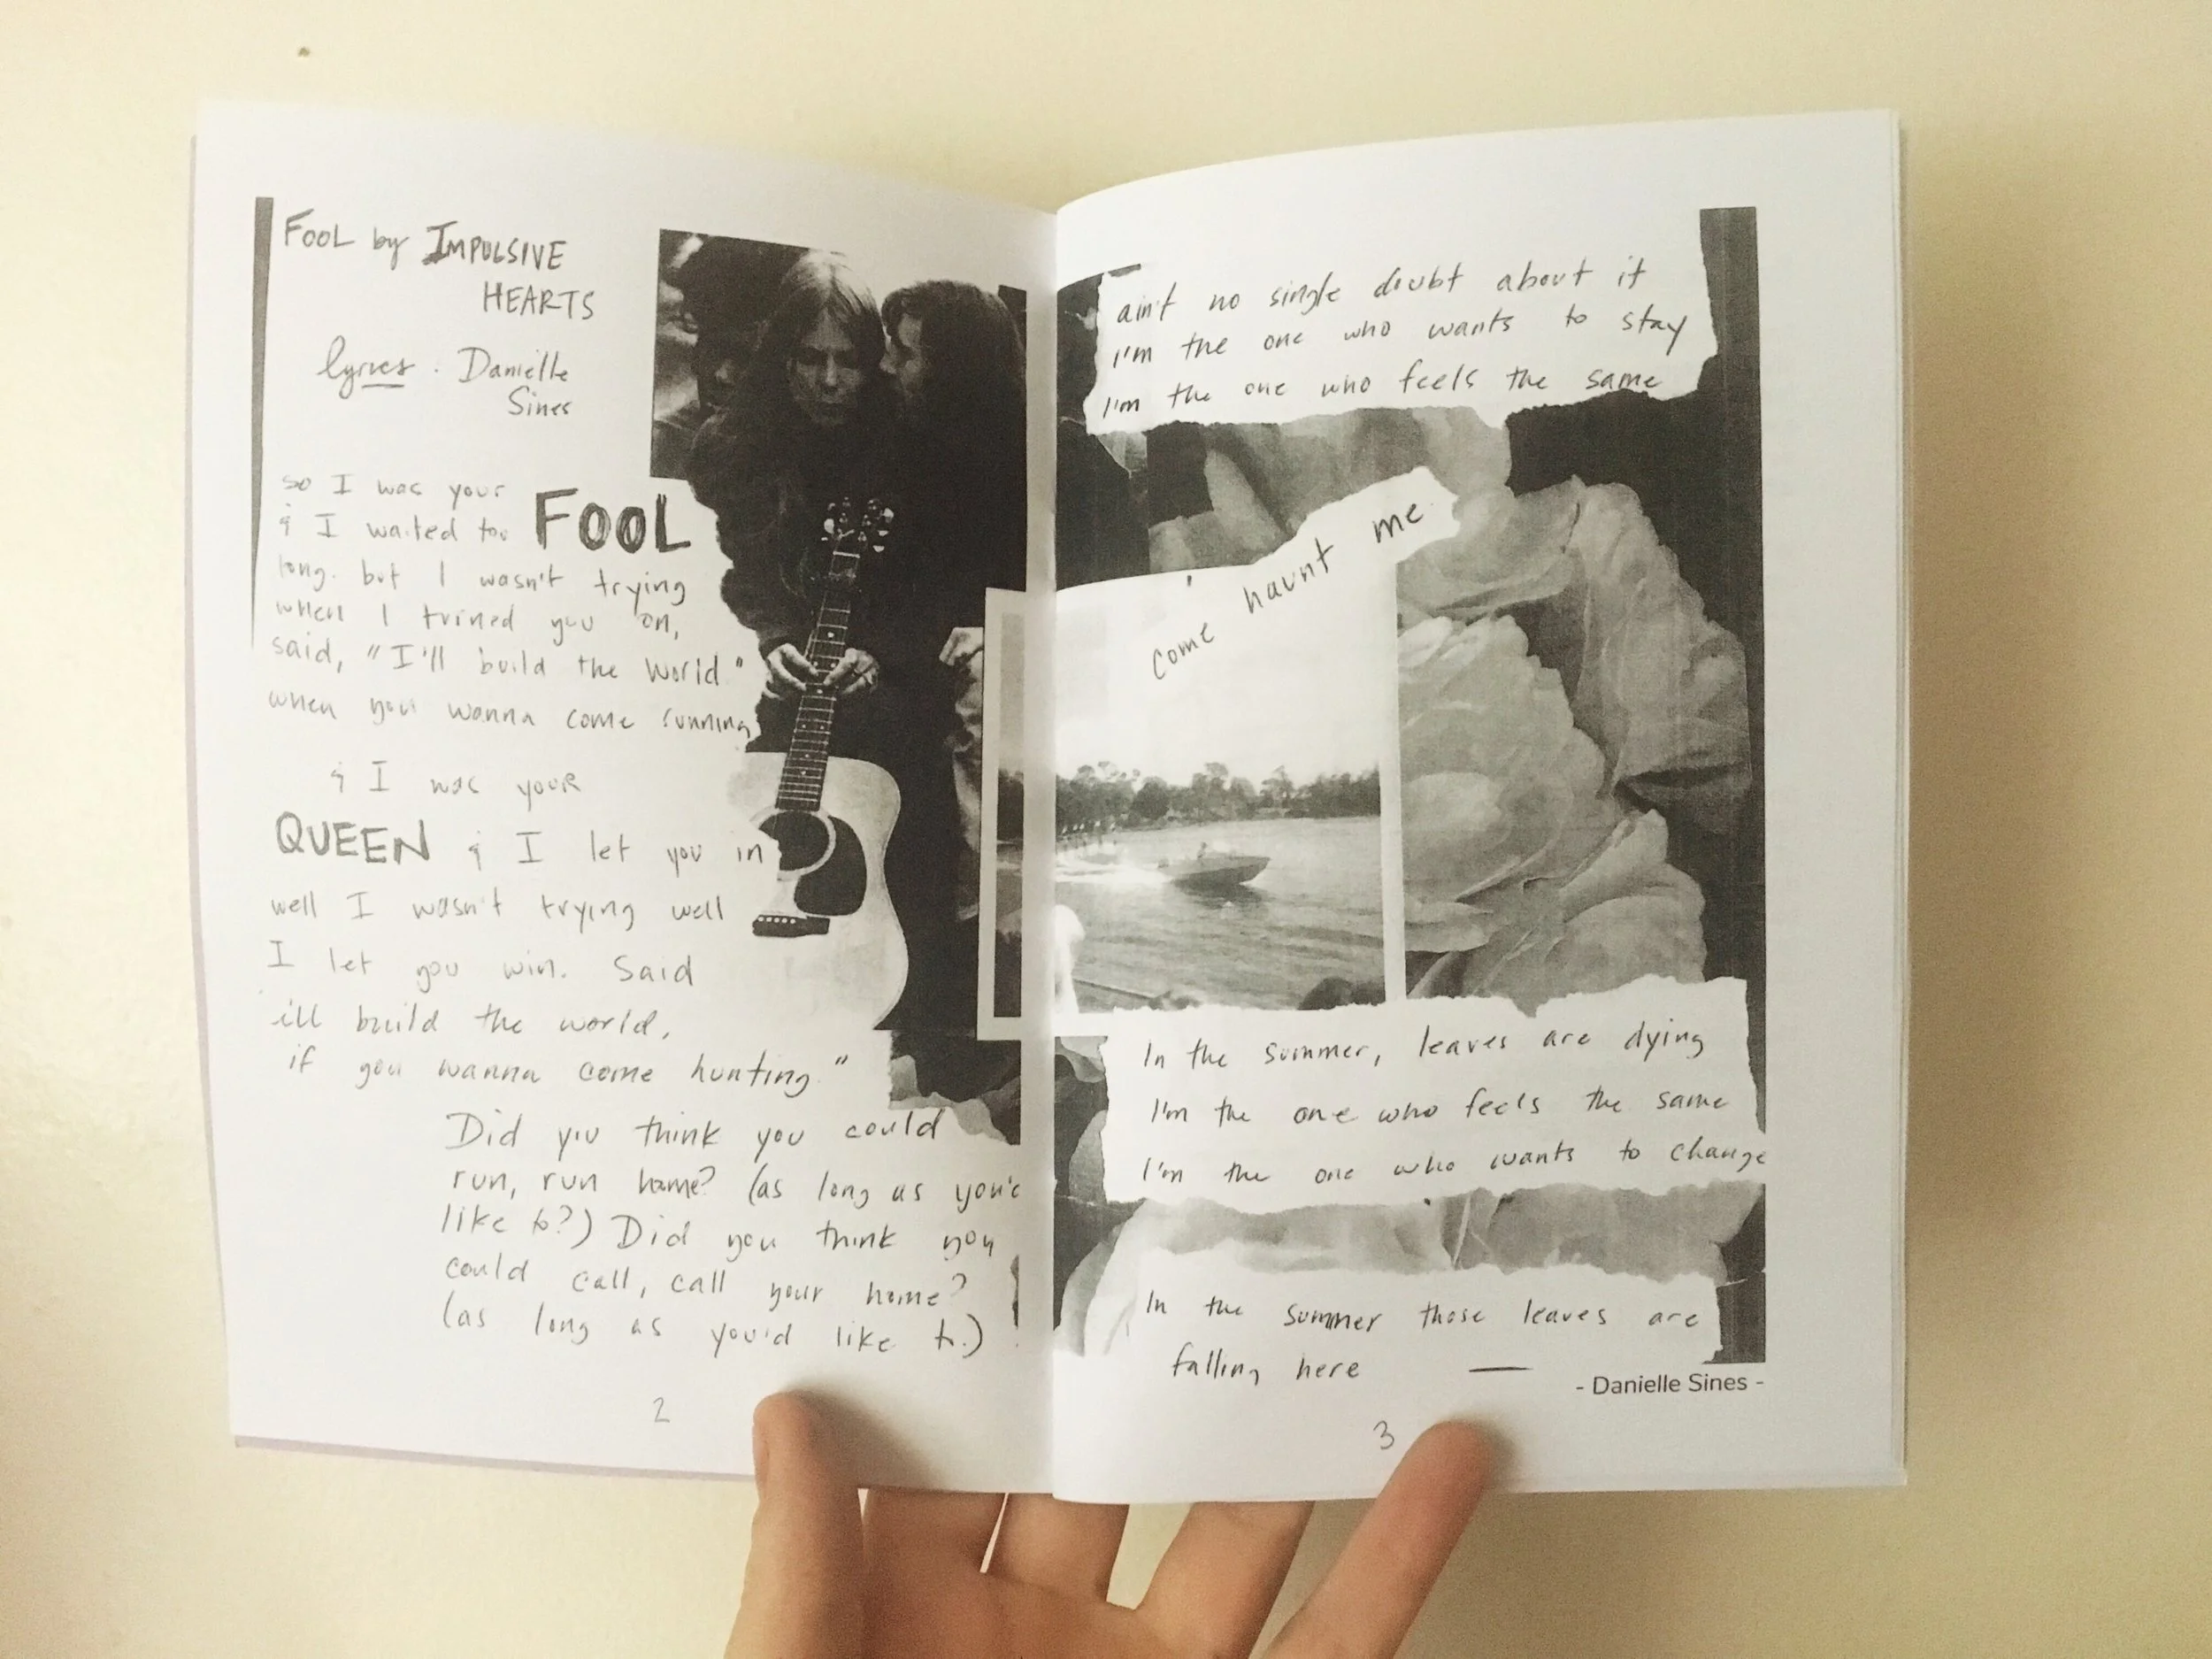 FOOL by IMPULSIVE
HEARTS
lyrics . Danielle
Sines
so I was your
& I waited too FOOL
long. but I wasn't trying
when I turned you on,
said, "I'll build the world"
when you wanna come running
& I was your
QUEEN & I let you in
well I wasn't trying well
I let you win. Said
ill build the world,
if you wanna come hunting."
Did you think you could
run, run home? (as long as you'd
like to?) Did you think you
could call, call your home?
(as long as you'd like to.)
2
ain't no single doubt about it
I'm the one who wants to stay
I'm the one who feels the same
come haunt me
In the summer, leaves are dying
I'm the one who feels the same
I'm the one who wants to change
In the summer those leaves are
falling here —
- Danielle Sines -
3